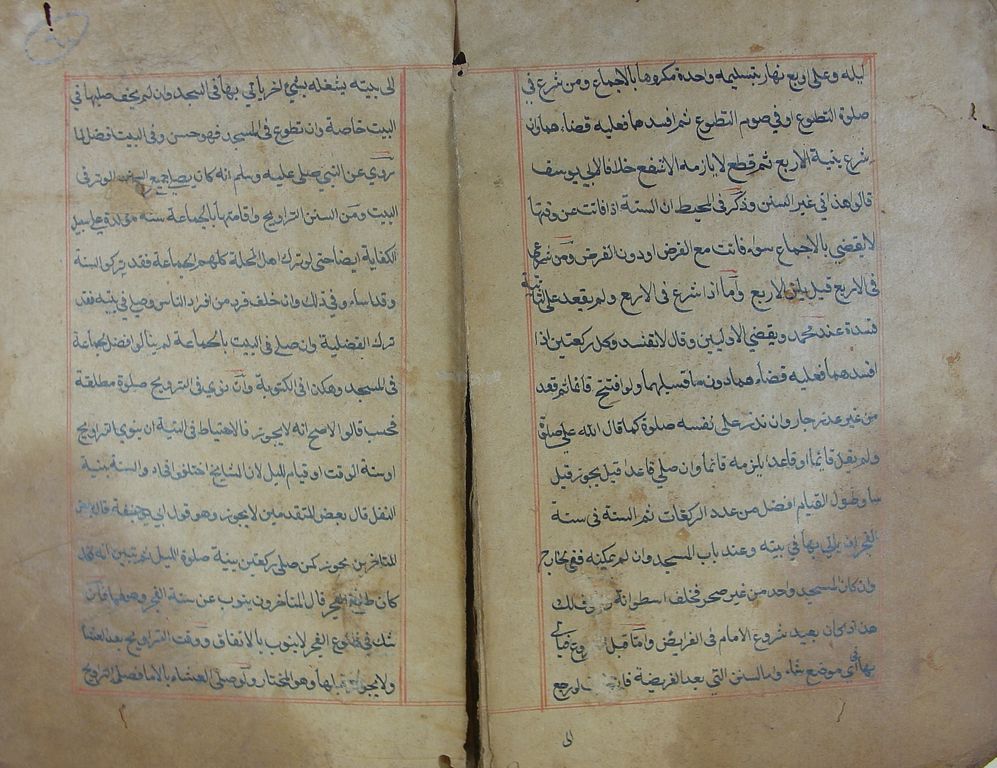 ليله وعلى اربع نهار بتسليمه واحدة مكروها بالاجماع ومن شرع في
صلوة التطوع او في صوم التطوع ثم افسدهما فعليه قضاءهما وان
شرع بنية الاربع ثم قطع لا يلزمه الا شفع خلافا لابي يوسف
قالوا هذا في غير السنن وذكر في المحيط ان السنة اذا فاتت عن وقتها
لا يقضي بالاجماع سواء فاتت مع الفرض او دون الفرض ومن شرع
في الاربع قبل الاربع واما اذا شرع في الاربع ولم يقعد على الثانية
فسدة عند محمد ويقضي الاوليين وقالا لا تفسد وكل ركعتين اذا
افسدهما فعليه قضاءهما دون ما قبلهما ولو افتتح قائما ثم قعد
من غير عذر جاز وان نذر على نفسه صلوة كما قال الله علي صلوة
ولم يقل قائما او قاعدا يلزمه قائما وان صلى قاعدا قيل يجوز قيل
لا وطول القيام افضل من عدد الركعات ثم السنة في سنة
الفجر ان ياتي بها في بيته او عند باب المسجد وان لم يمكنه ففي الخارج
وان كان المسجد واحد من غير صحر فخلف اسطوانة ذلك
هذا اذا كان بعد شروع الامام في الفرايض واما قبل
بها في اي موضع شاء واما السنن التي بعد الفريضة ورجع
الى
الى بيته يشغله بشئ اخر ياتي بها في المسجد وان لم يخف صليها في
البيت خاصة وان تطوع في المسجد فهو حسن وفي البيت افضل لما
روي عن النبي صلى عليه وسلم انه كان يصلي جميع السنن والوتر في
البيت ومن السنن التراويح واقامتها بالجماعة سنه موكدة على سبيل
الكفاية ايضا حتى لو ترك اهل المحلة كلهم الجماعة فقد تركوا السنة
وقد اساءو في ذلك وان تخلف فرد من افراد الناس وصلى في بيته فقد
ترك الفضلية وان صلى في البيت بالجماعة لم ينالوا فضل الجماعة
في المسجد وهكذا في المكتوبة وان نوي في الترويح صلوة مطلقة
فحسب قالوا الاصح انه لا يجوز فالاحتياط في النية ان ينوي التراويح
او سنة الوقت او قيام الليل لان المشايخ اختلفوا في اداء والسنة بنية
النفل قال بعض المتقدمين لا يجوز وهو قول ابي حنيفة قال بعض
المتاخرين يجوز كمن صلى ركعتين بنية صلوة الليل ثم تبين انه قد
كان طلع الفجر قال المتاخرون ينوب عن سنة الفجر وهو لما فان
شك في طلوع الفجر لا ينوب بالاتفاق ووقت التراويح بعد العشاء
ولا يجوز قبلها وهو المختار ولو صلى العشاء بالامام صلى الترويح